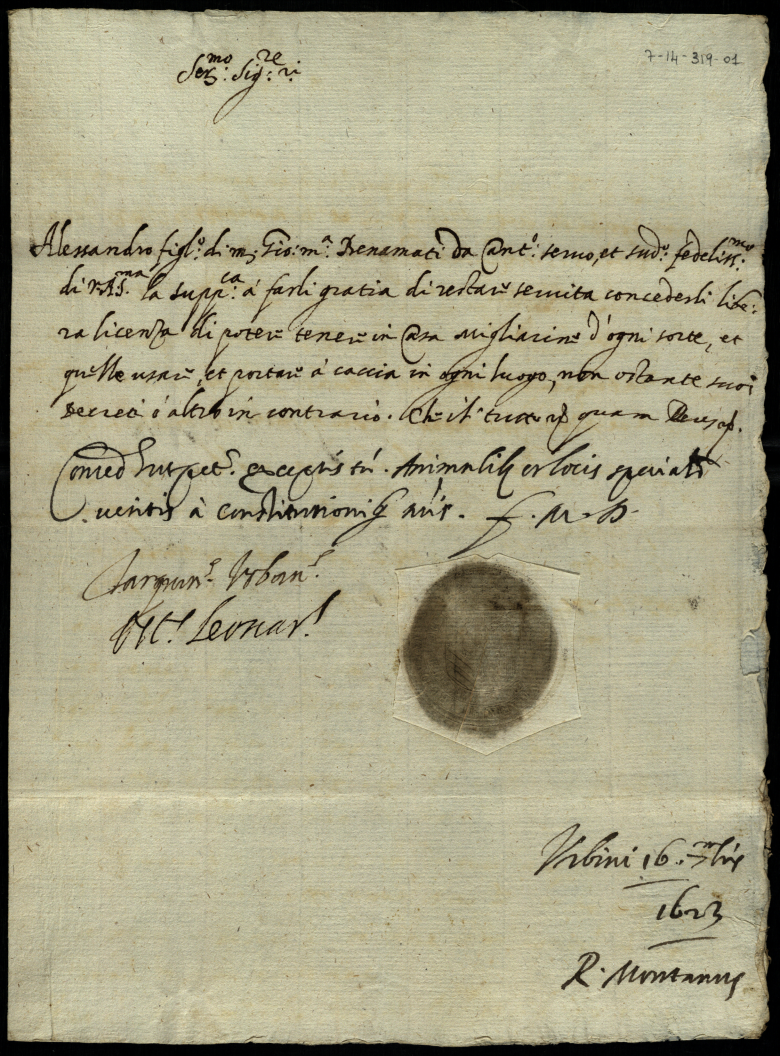 7-14-319-01
Ser.mo Sig.re
Alessandro figl.o di m. Gio: m.a Benamati da Cant.o servo, et sud.o fedeliss.mo
di V.A.S.ma la supp.ca á farli gratia di restare servita concederli libe-
ra licenza di potere tenere in casa Migliarine d'ogni sorte, et
quelle usare, et portare á caccia in ogni luogo, non ostante suoi
decreti ó altro in contrario. Che il tutto quam Deus
Conced. ut pet. exceptis tñ. Animalib. et locis speciali
vetitis à constitutionib.
Tarquin.s Urban.s
Leonar.
Urbini 16 7bris
1623
R. Montanus